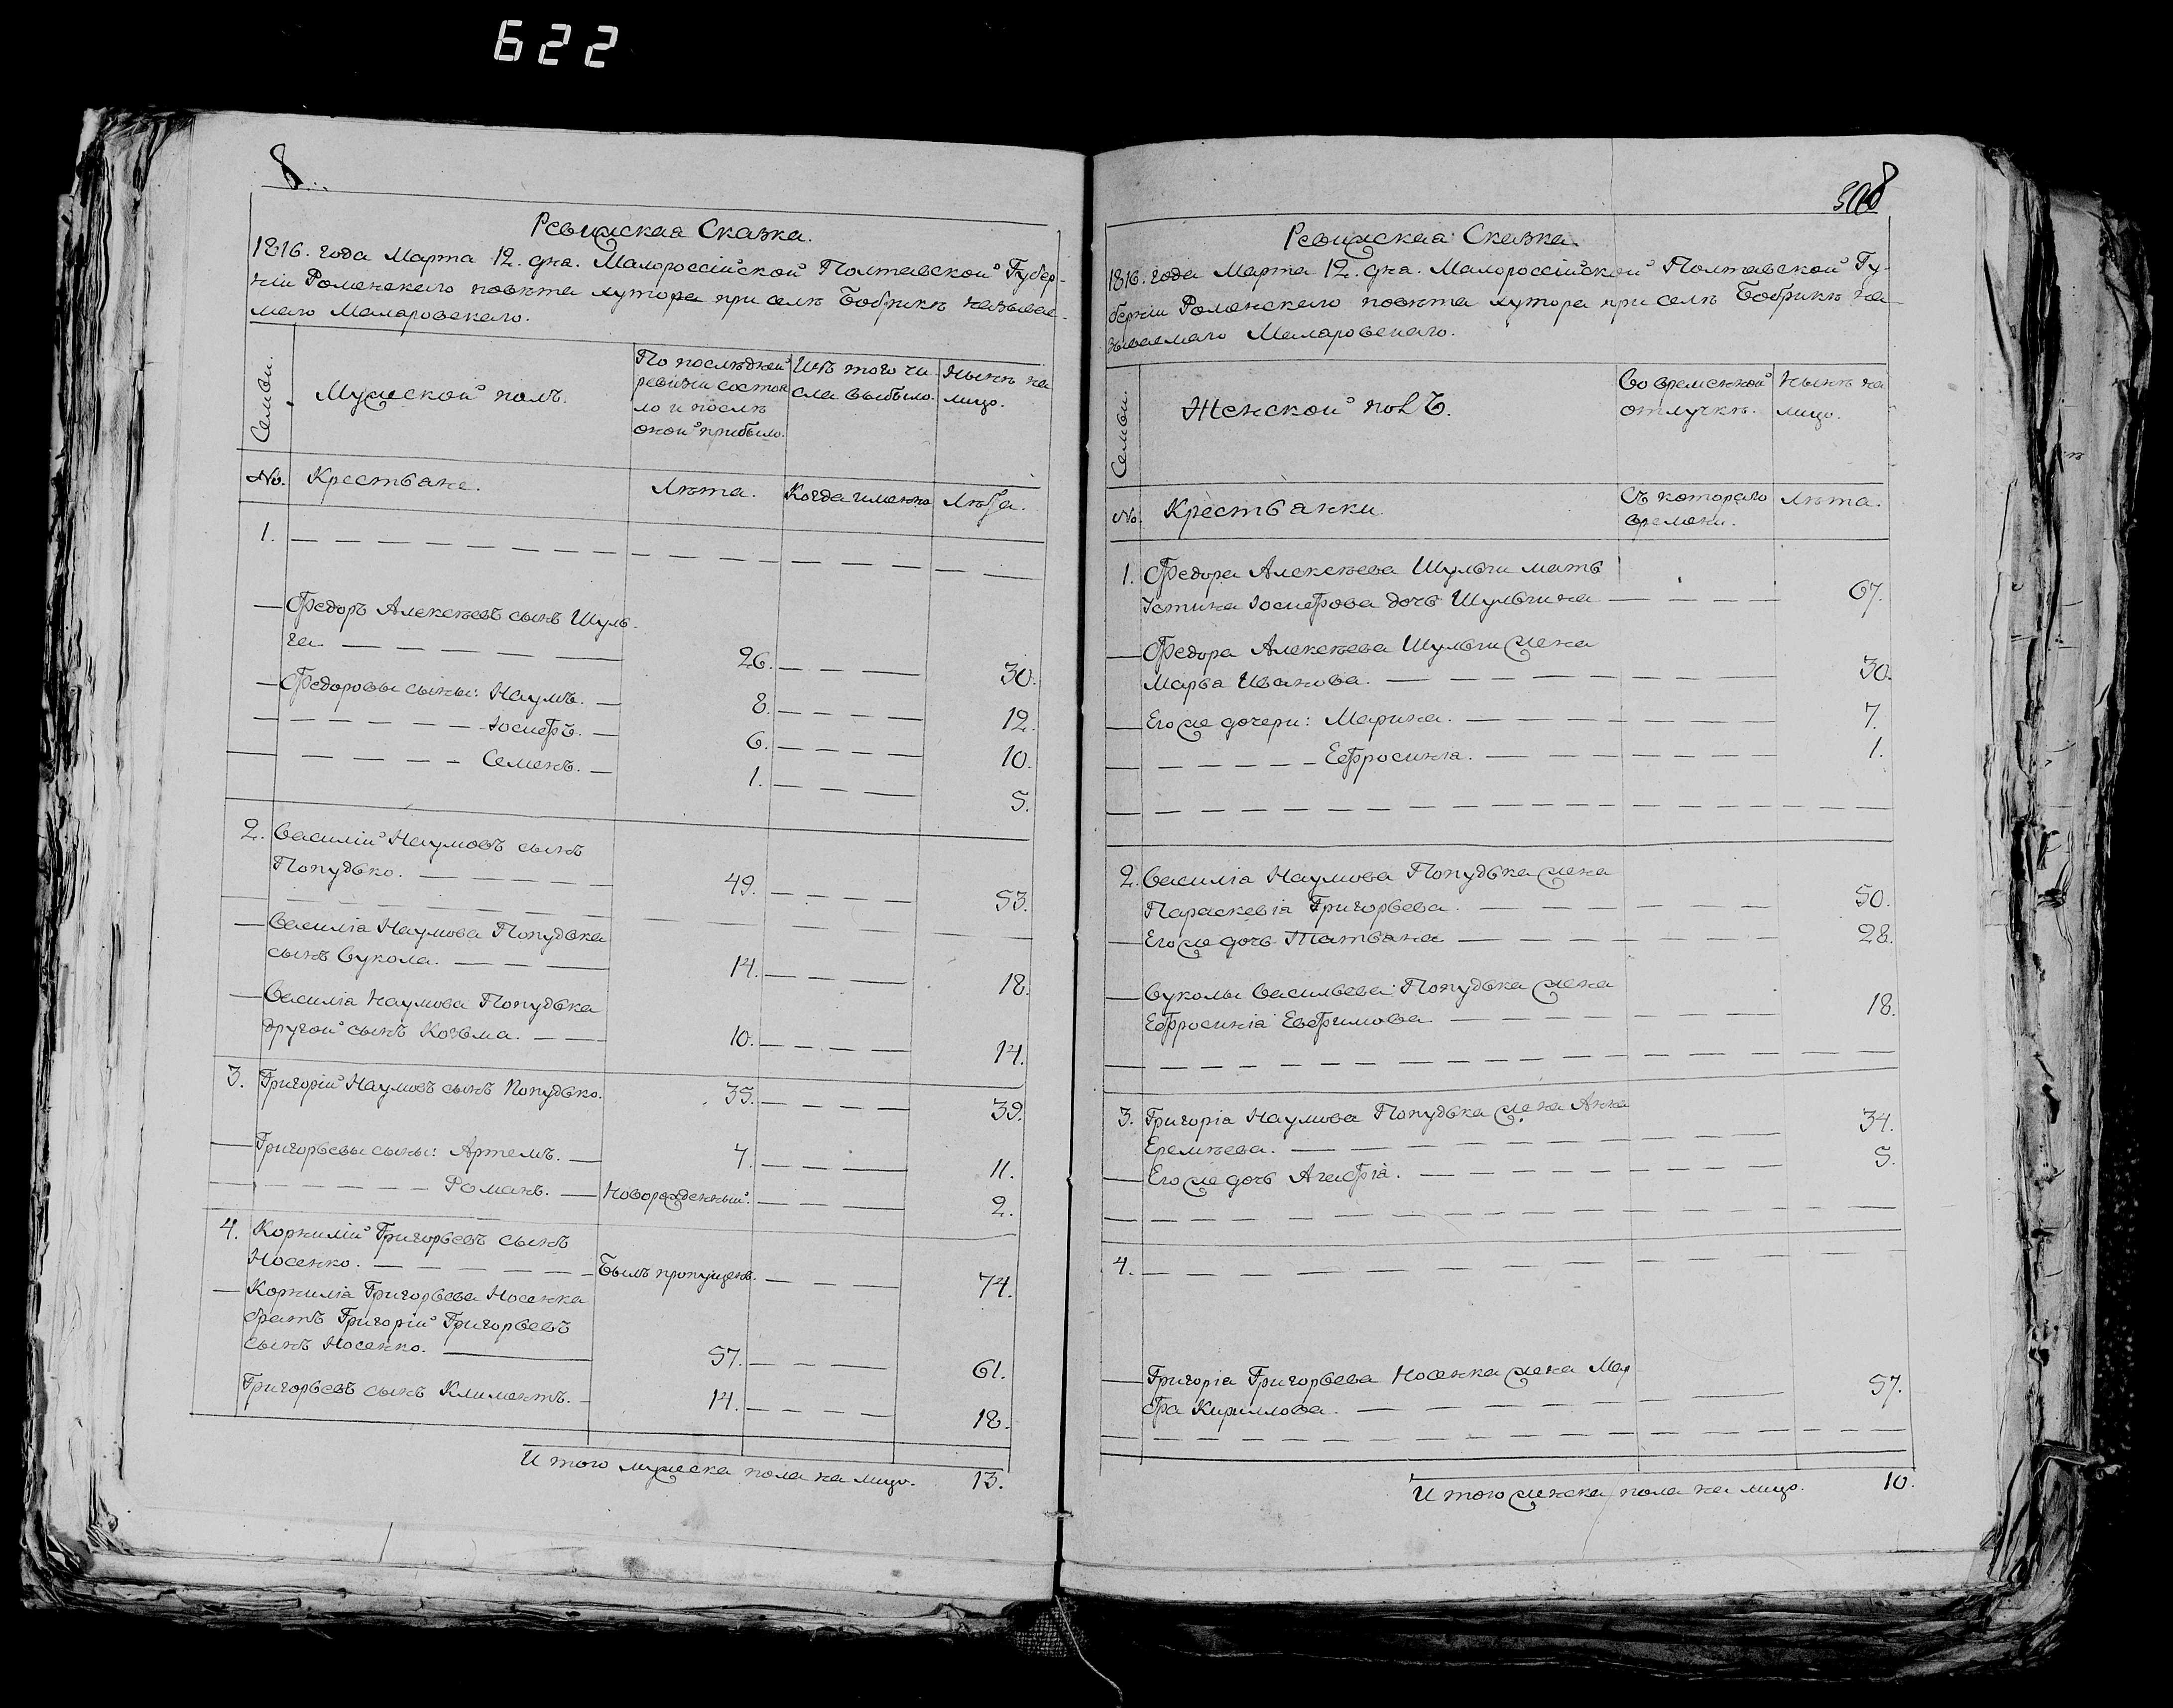 622
8
Ревизская Сказка.
1816. года Марта 12. дня. Малороссійской Полтавской Губер-
ніи Роменскаго повѣта хутора при селѣ Бобрикѣ называе-
маго Макаровскаго.
Семьи.
Мужеской полъ.
По послѣдней
ревизіи состоя
ло и послѣ
оной прибыло.
Изъ того чи
сла выбыло.
Нынѣ на
лицо.
№. Крестьяне. Лѣта. Когда именно Лѣта.
1.
Федоръ Алексѣевъ сынъ Шуль-
га. 26. 30.
Федоровы сыны: Наумъ. 8. 12.
Іосифъ. 6. 10.
Семенъ. 1. 5.
2. Василій Наумовъ сынъ
Попудько. 49. 53.
Василія Наумова Попудька
сынъ Вукола. 14. 18.
Василія Наумова Попудька
другой сынъ Козьма. 10. 14.
3. Григорій Наумовъ сынъ Попудько. 35. 39.
Григорьевы сыны: Артемъ. 7. 11.
Романъ. Новорожденный. 2.
4. Корнилій Григорьевъ сынъ
Носенко. Былъ пропущенъ. 74.
Корнилія Григорьева Носенка
братъ Григорій Григорьевъ
сынъ Носенко. 57. 61.
Григорьевъ сынъ Климентъ. 14. 18.
Итого мужеска пола на лицо. 13.
508
Ревизская Сказка.
1816. года Марта 12. дня. Малороссійской Полтавской Гу-
берніи Роменскаго повѣта хутора при селѣ Бобрикѣ на-
зываемаго Макаровскаго.
Семьи.
Женской полъ.
Во временной
отлучкѣ.
Нынѣ на
лицо.
№. Крестьянки. Съ котораго
времени. Лѣта.
1. Федора Алексѣева Шульги мать
Устина Іосифова дочь Шульгина 67.
Федора Алексѣева Шульги жена
Марья Иванова. 30.
Его же дочери: Марина. 7.
Ефросинія. 1.
2. Василія Наумова Попудька жена
Параскевія Григорьева. 50.
Его же дочь Татьяна 28.
Вуколы Васильева Попудька жена
Ефросинія Евфимова 18.
3. Григорія Наумова Попудька жена Анна
Еремѣева. 34.
Его же дочь Агафія. 5.
4.
Григорія Григорьева Носенка жена Мар
фа Кирилова. 57.
Итого женска пола на лицо. 10.